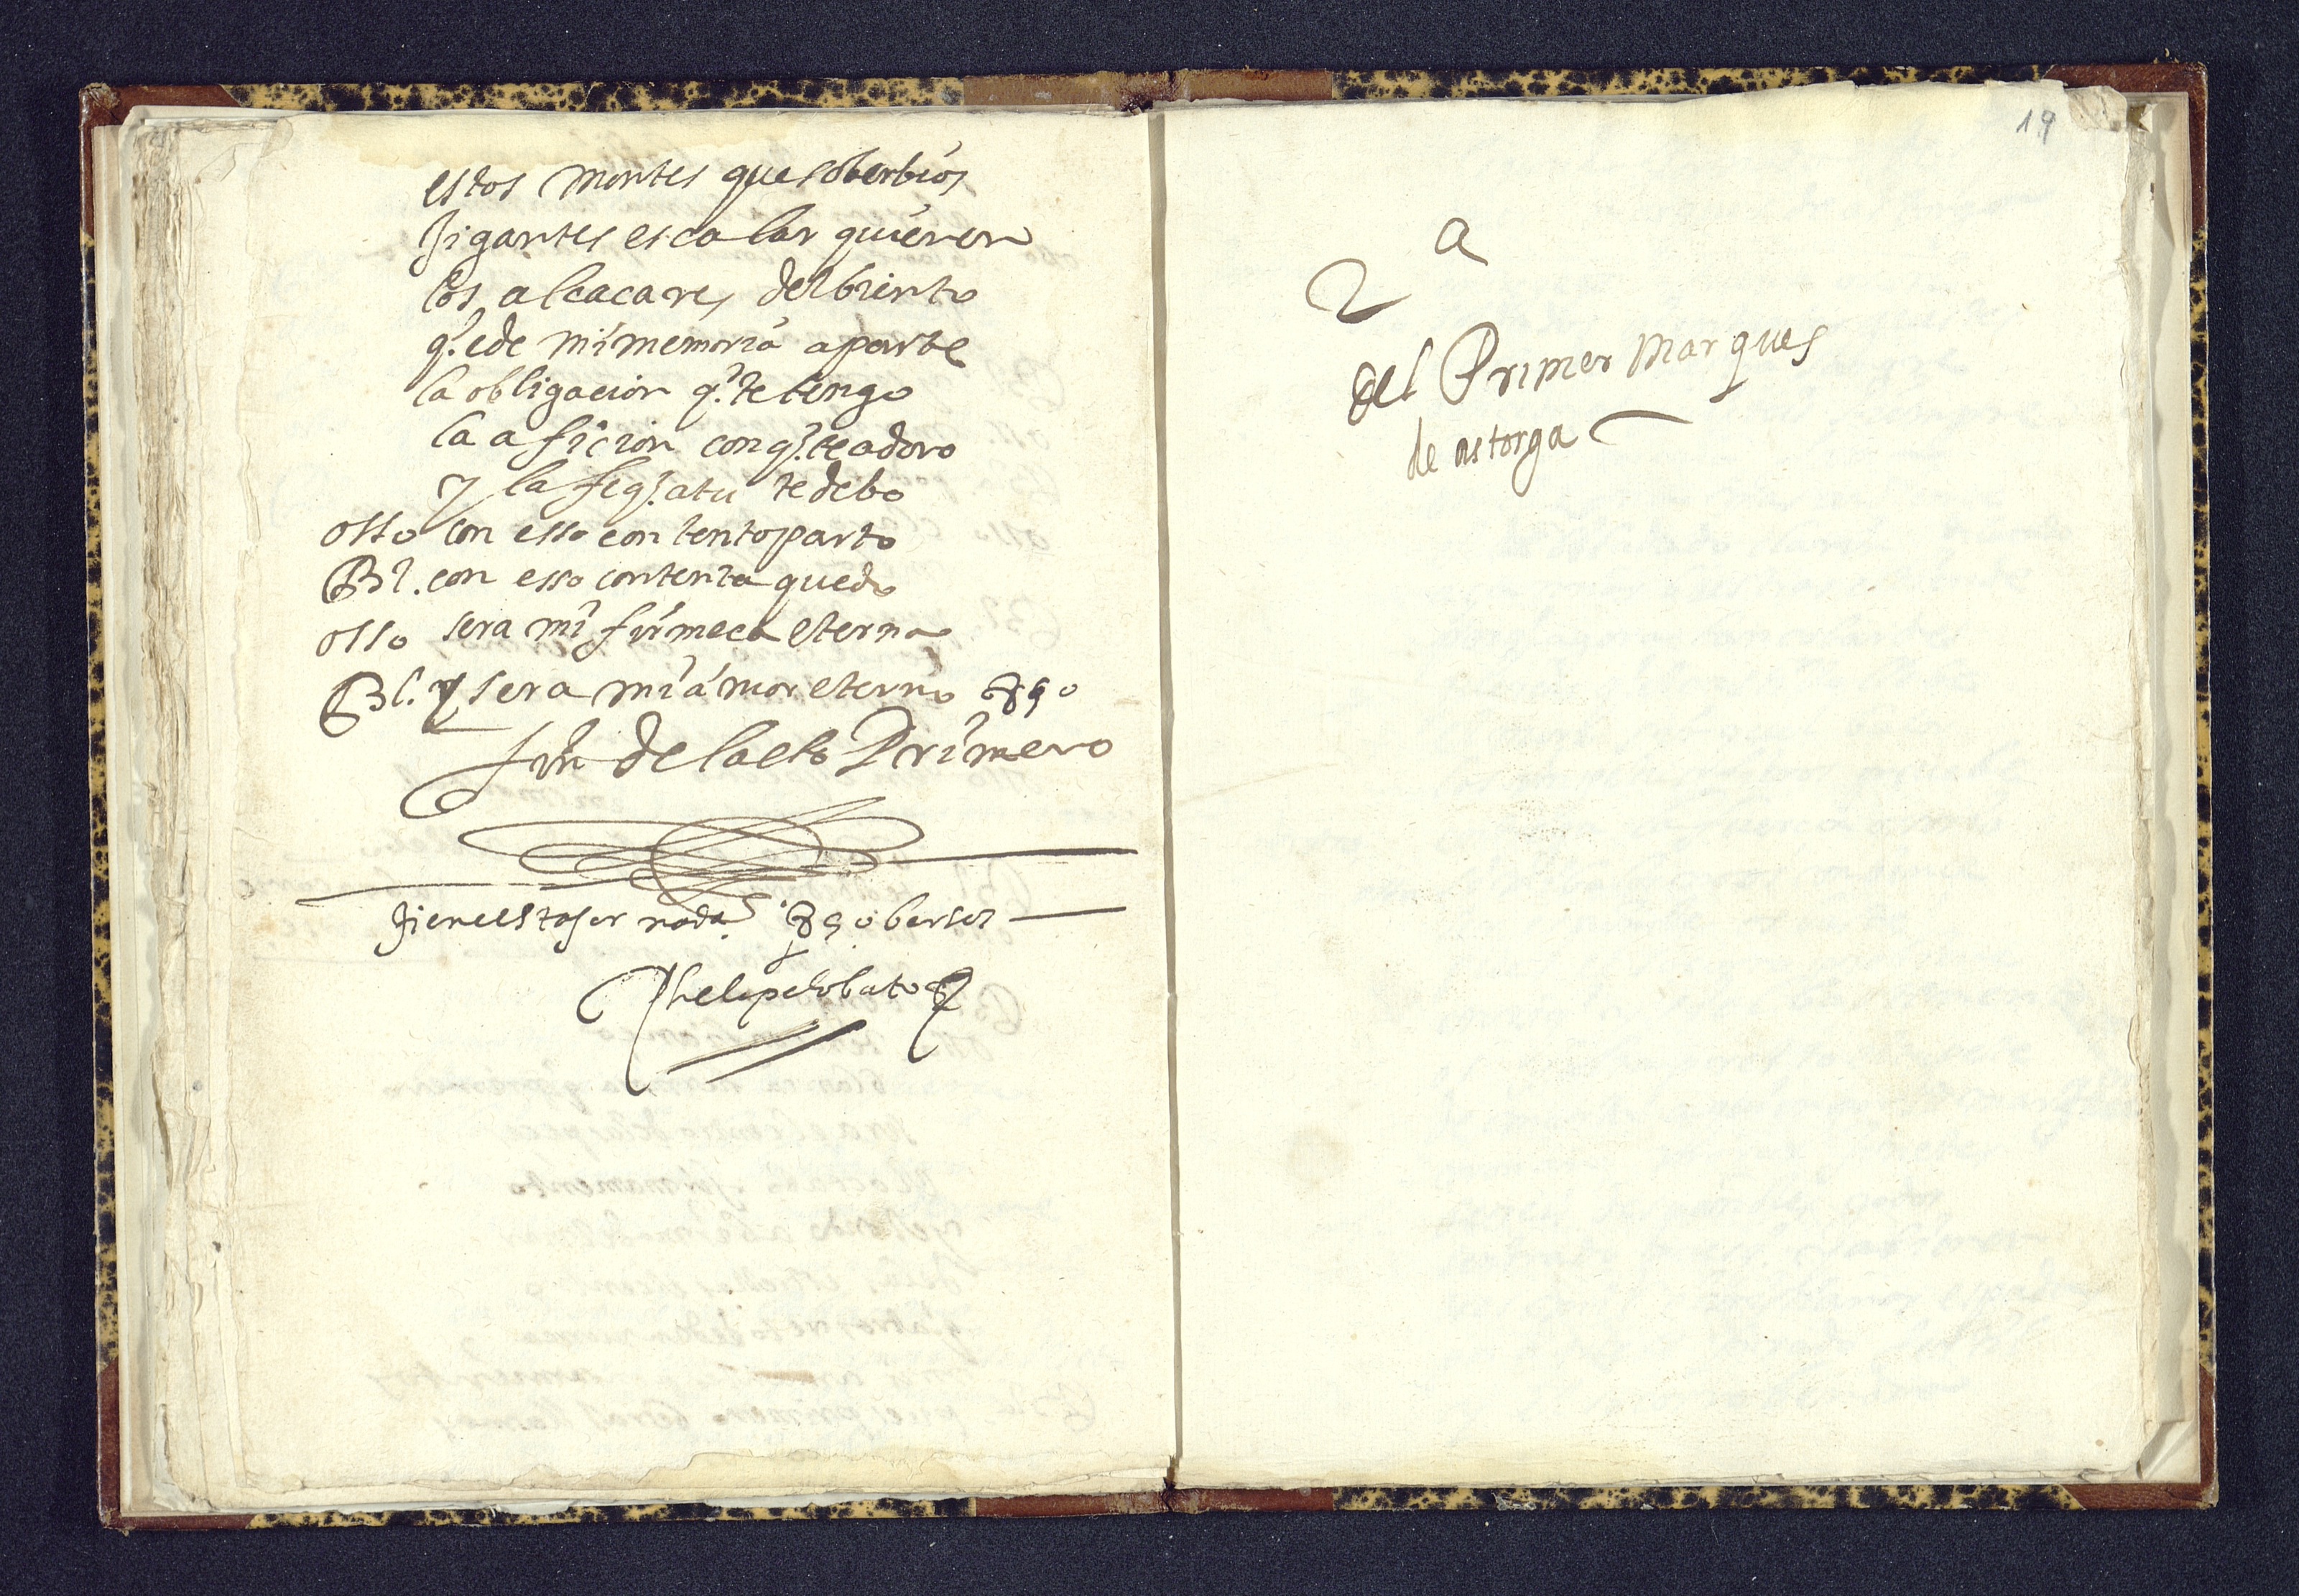 estos montes que soberbios
jigantes escalar quieren
los alcaçares del biento
q.ede mi memoria aparte
la obligacion q. te tengo
la aficion con q. te adoro
y la fe q. a tu te debo
osso con esso contento parto
Bl. con esso contenta quedo
osso sera mi firmeça eterna
Bl. y sera mi amor eterno 890
fin del acto Primero
tiene esta jornada 890 bersos
Phelipe lobato
19
2 a
del Primer marques
de astorga